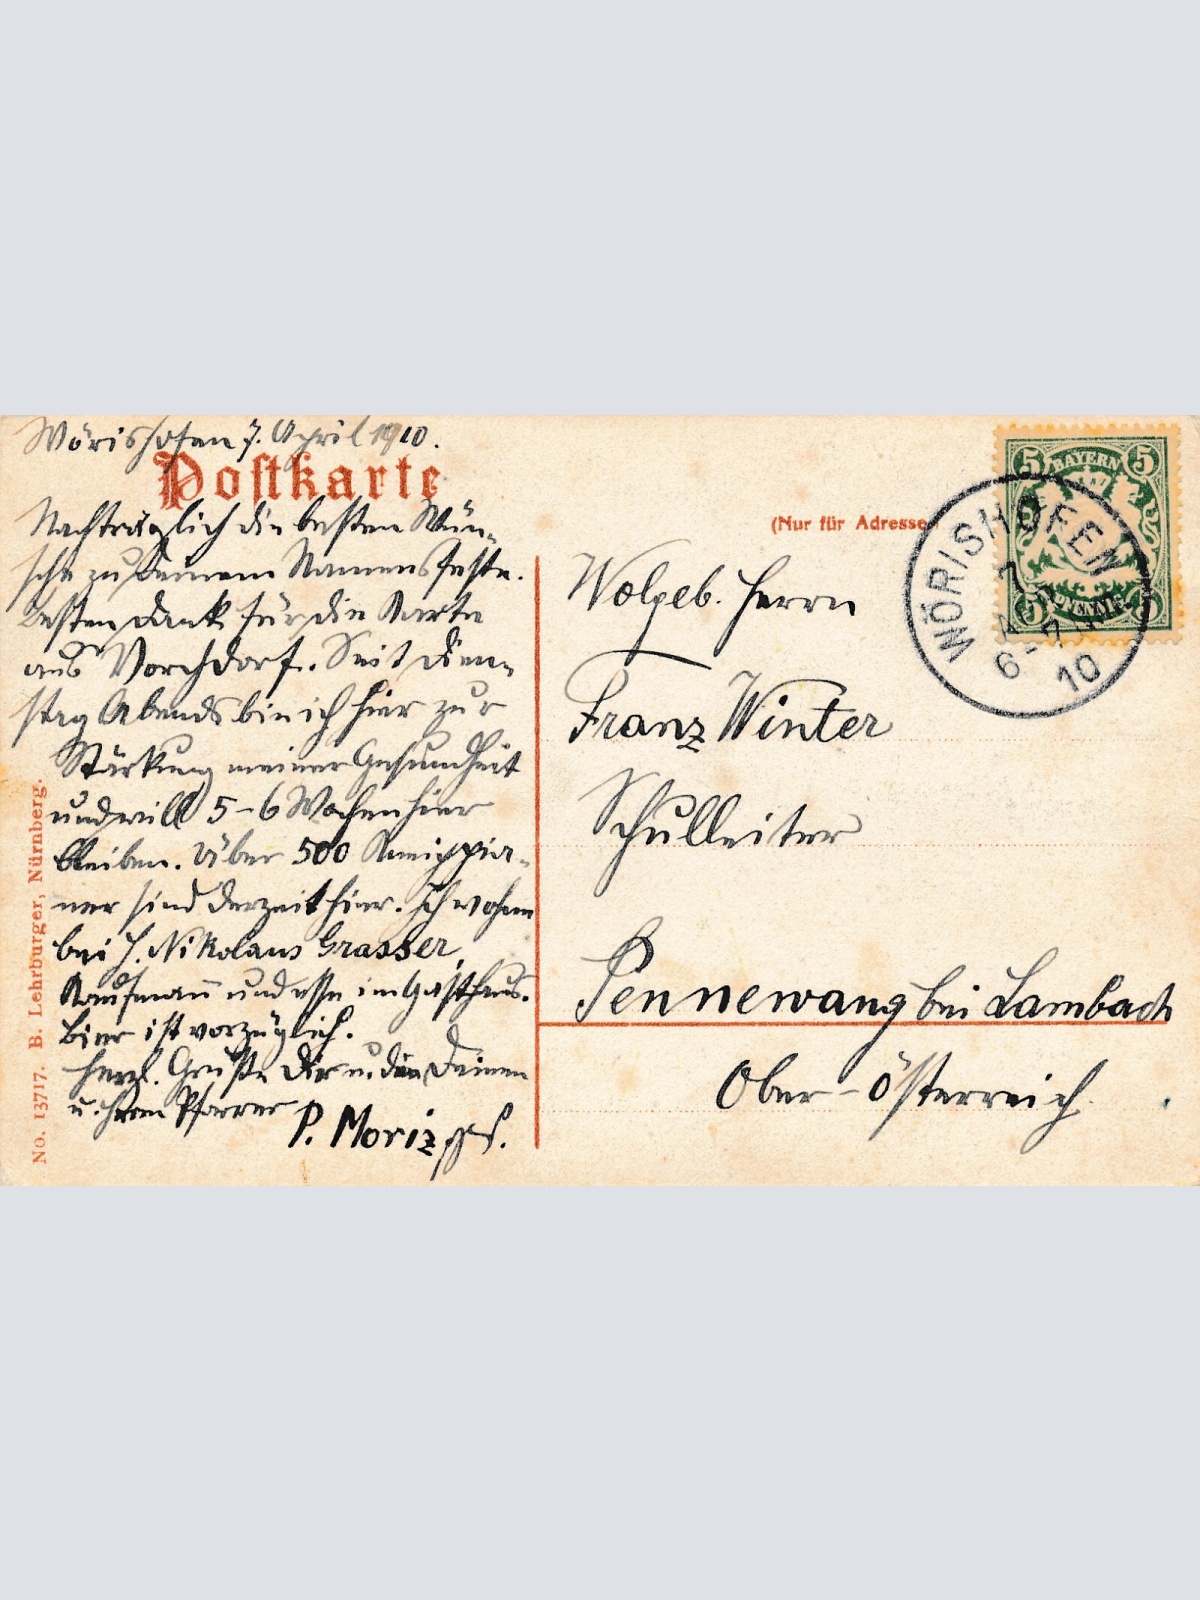 Wörishofen 7. April 1910.
Postkarte
Nachträglich die besten Wün-
sche zu Deinem Namensfeste.
Besten Dank für die Karte
aus Vorchdorf. Seit Dien-
stag Abends bin ich hier zur
Stärkung meiner Gesundheit
und will 5-6 Wochen hier
bleiben. Über 500 Kneippia-
ner sind derzeit hier. Ich wohne
bei H. Nikolaus Grasser,
Kaufmann und esse im Gasthaus.
Bier ist vorzüglich.
Herzl. Grüße Dir u. den Deinen
u. Herrn Pfarrer
P. Moriz
No. 13717. B. Lehrburger, Nürnberg.
(Nur für Adresse
5 BAYERN 5
WÖRISHOFEN
7
6-7
10
Wolgeb. Herrn
Franz Winter
Schulleiter
Pennewang bei Lambach
Ober-Österreich